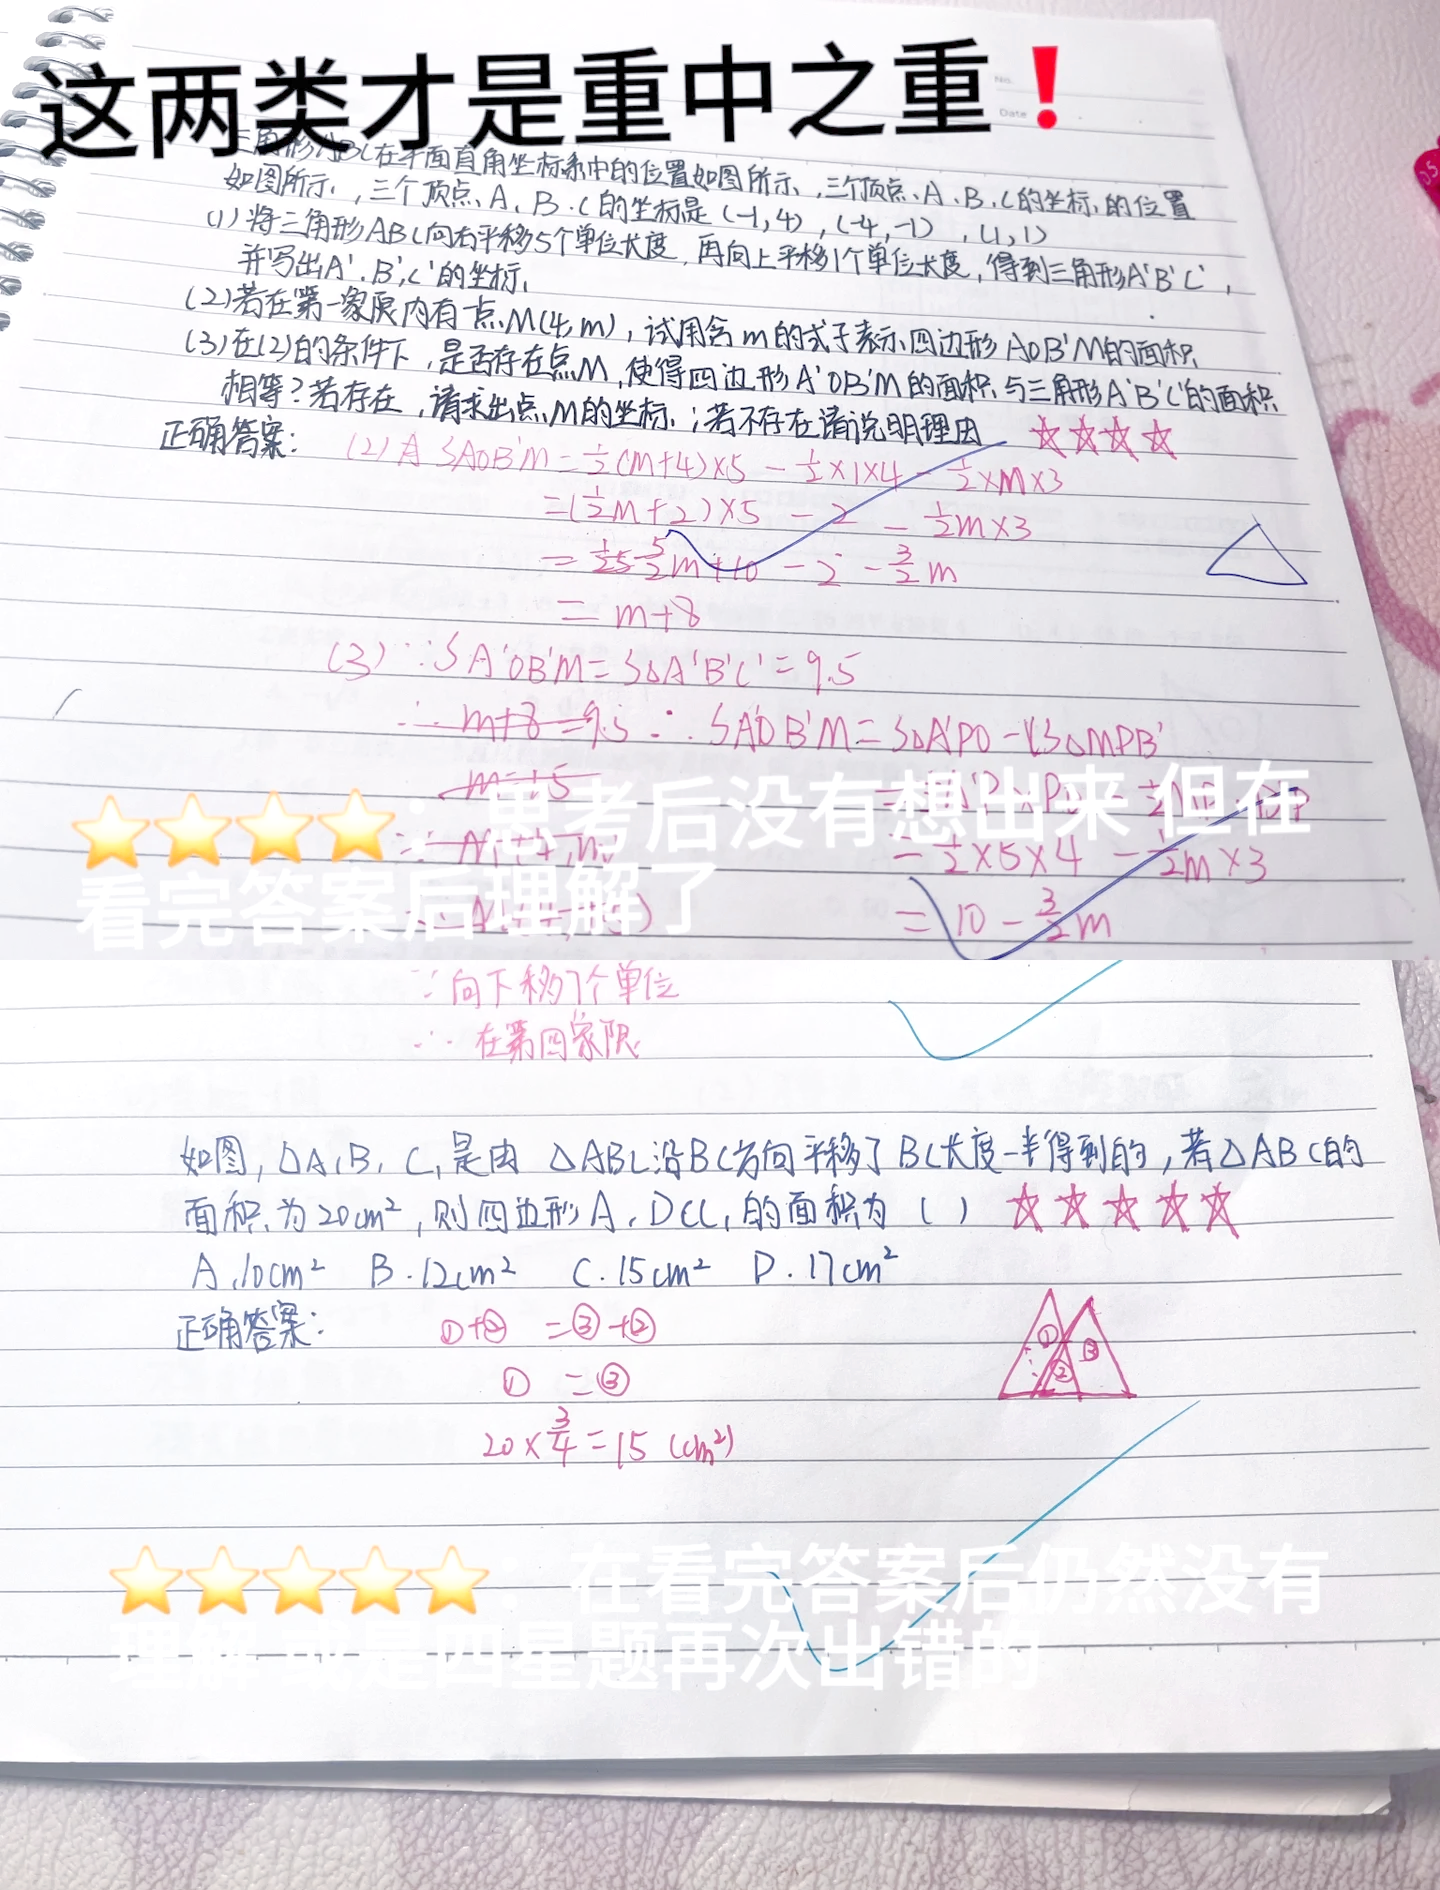 这两类才是重中之重❗
No.
Date
三角形ABC在平面直角坐标系中的位置如图所示,三个顶点A、B、C的坐标的位置
如图所示,三个顶点A、B、C的坐标是(-1,4),(-4,-1),(1,1)
(1)将三角形ABC向右平移5个单位长度,再向上平移1个单位长度,得到三角形A'B'C',
并写出A'、B'、C'的坐标,
(2)若在第一象限内有一点M(4,m),试用含m的式子表示四边形AOB'M的面积
(3)在(2)的条件下,是否存在点M,使得四边形A'OB'M的面积与三角形A'B'C'的面积
相等?若存在,请求出点M的坐标;若不存在请说明理由 ☆☆☆☆
正确答案: (2)
SAOB'M=½(m+4)×5-½×1×4-½×m×3
=(½m+2)×5-2-½m×3
=5/2m+10-2-3/2m
=m+8
(3)∵SA'OB'M=S△A'B'C'=9.5
∴m+8=9.5 ∵SA'OB'M=S△A'PO-S△MPB'
m=1.5
=½×5×4-½m×3
=10-3/2m
⭐⭐⭐⭐:思考后没有想出来 但在
看完答案后理解了
∵向下移7个单位
∴在第四象限
如图,△A₁B₁C₁是由△ABC沿BC方向平移了BC长度一半得到的,若△ABC的
面积为20cm²,则四边形A₁DCC₁的面积为( ) ☆☆☆☆☆
A.10cm² B.12cm² C.15cm² D.17cm²
正确答案: ①+②=③+②
①=③
20×3/4=15(cm²)
① ② ③
⭐⭐⭐⭐⭐:在看完答案后仍然没有
理解 或是四星题再次出错的